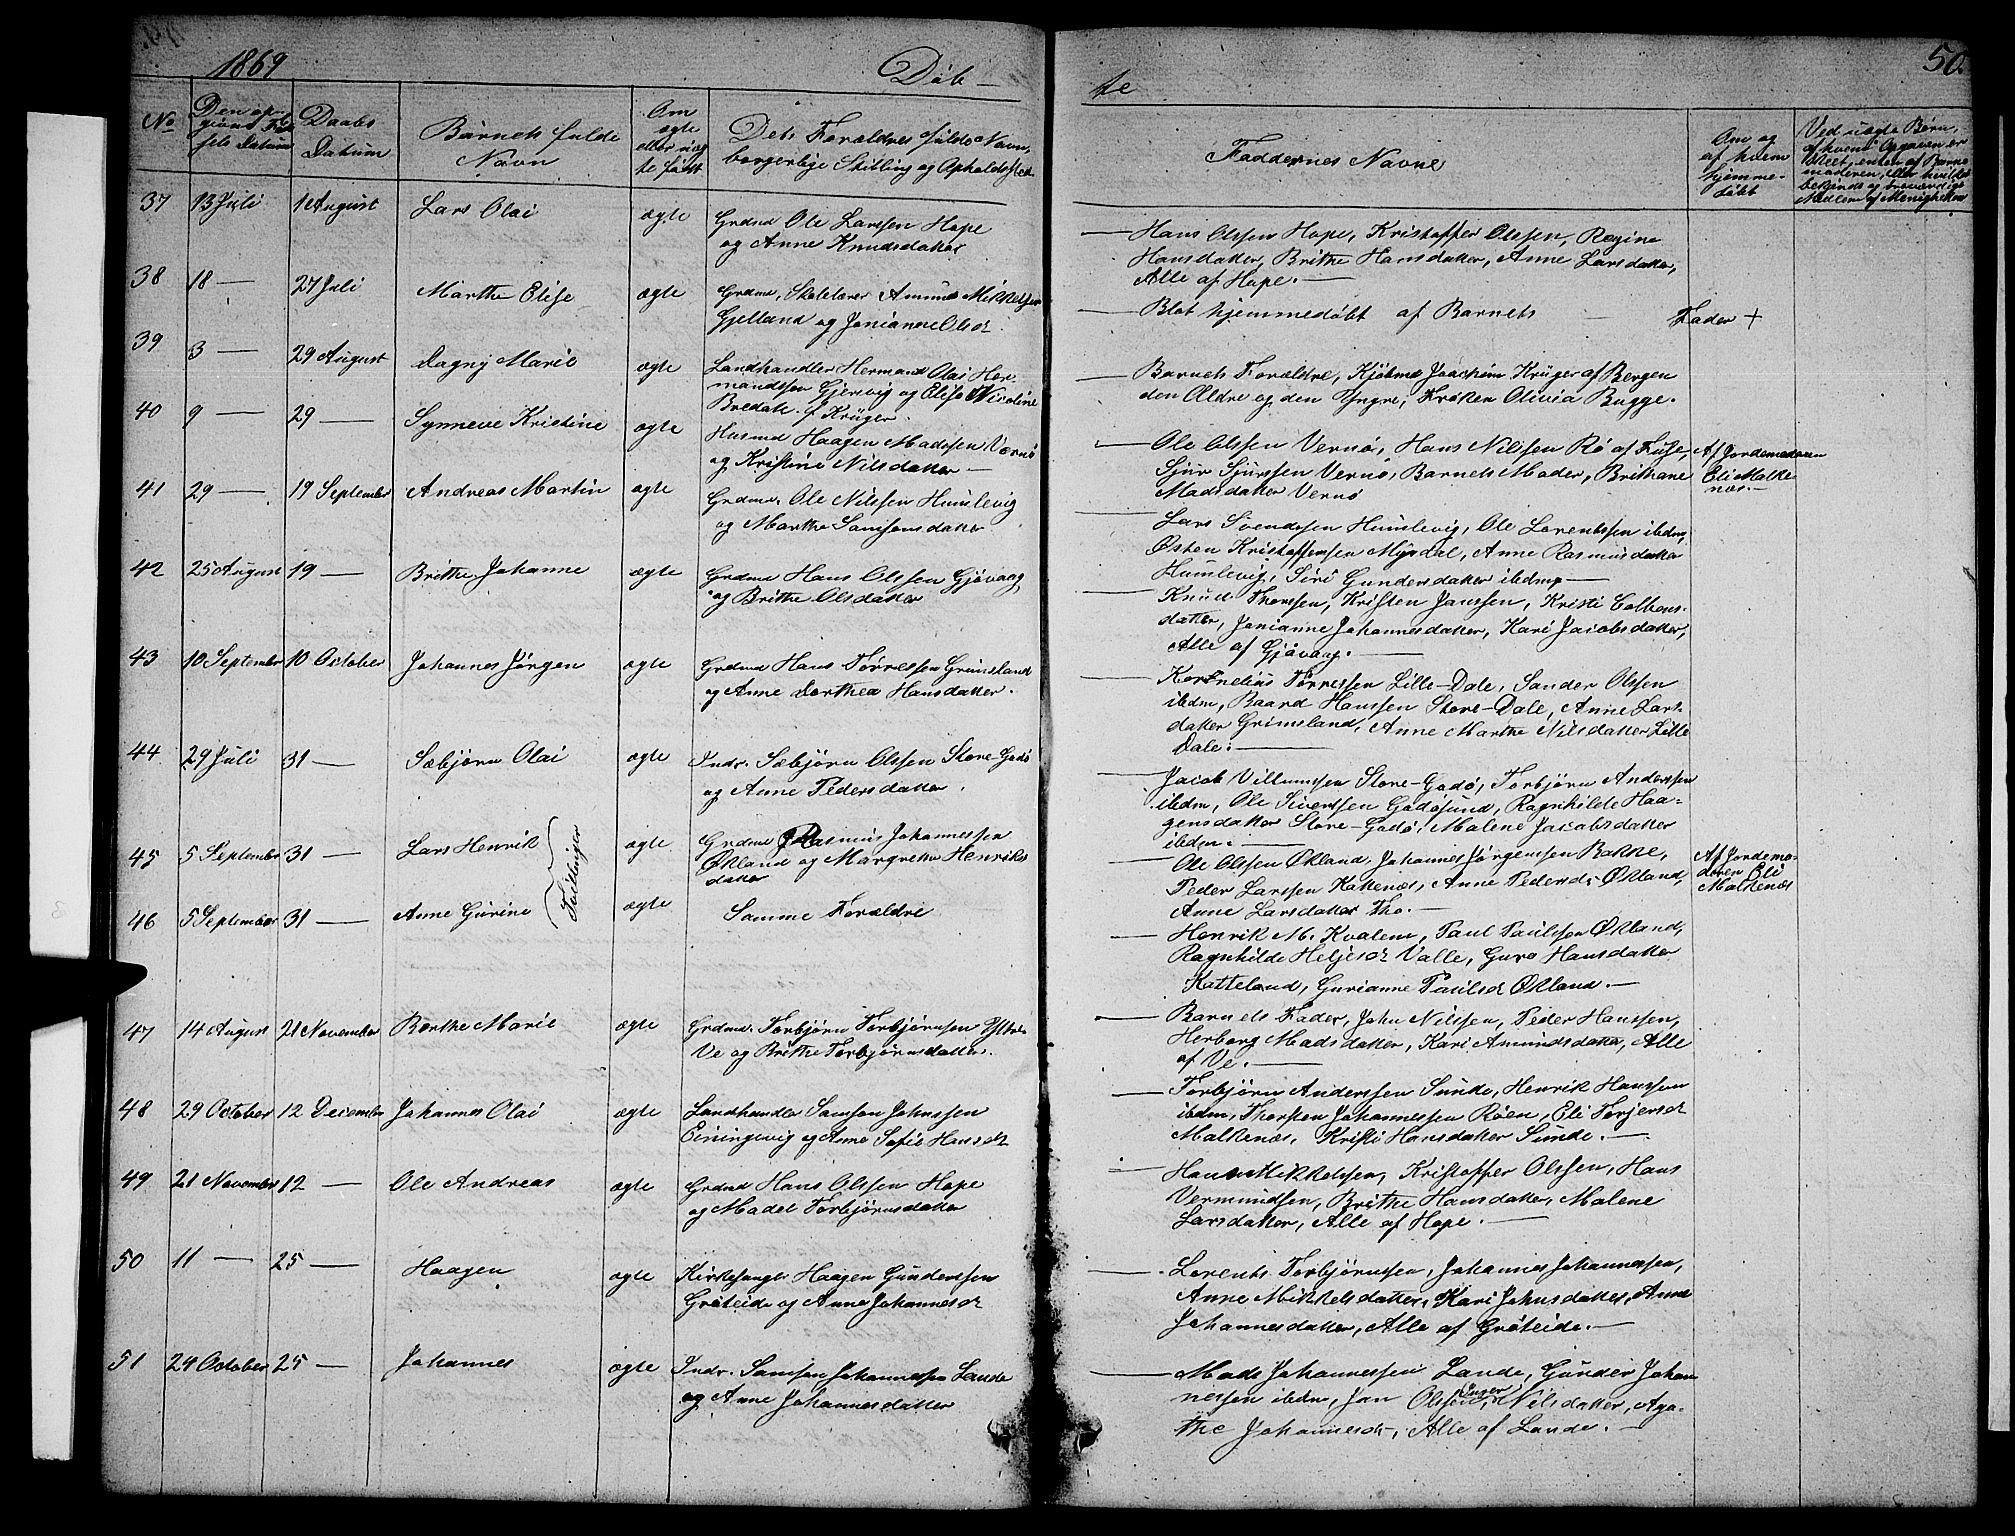 1869
Døb-
te
50.
No
Daabs
Datum
Barnets fulde
Navn
Om
ægte
Dets Forældres fulde Navn,
borgerlige Stilling og Opholdssted
Faddernes Navne
Om og
af hvem
hjemme-
døbt
Ved uægte Børn,
37
13 Juli
1 August
Lars Olai
ægte
Grdmd Ole Larssen Hope
og Anne Knudsdatter
Hans Olssen Hope, Kristoffer Olssen, Regine
Hansdatter, Brithe Hansdatter, Anne Larsdatter,
Alle af Hope.
38
18 —
27 Juli
Marthe Elise
ægte
Grdmd, Skolelærer Amund Mikkelsen
Gjelland og Janianne Olsd.
Blot hjemmedøbt af Barnets
Fader +
39
3 —
29 August
Dagny Marie
ægte
Landhandler Hermand Olai Her-
mandssen Gjervig og Elise Nicoline
Bredal f. Krüger.
Barnets Forældre, Kjøbmd Joachim Krüger af Bergen
den Ældre og den Yngre, Frøken Olivia Bugge.
40
9 —
29 —
Synneve Kristine
ægte
Husmd Haagen Madssen Vernø
og Kristine Nilsdatter —
Ole Olssen Vernø, Hans Nilssen Rø af Fuse,
Sjur Sjurssen Vernø, Barnets Moder, Brithane
Madsdatter Vernø
Af Jordemoderen
Eli Malke-
næs. —
41
29 —
19 September
Andreas Martin
ægte
Grdmd. Ole Nilssen Humlevig
og Marthe Samsonsdatter
Lars Svendssen Humlevig, Ole Lorentssen ibedm,
Østen Kristoffersen Myrdal, Anne Rasmusdatter
Humlevig, Siri Gundersdatter ibdm. —
42
25 August
19 —
Brithe Johanne
ægte
Grdmd Hans Olssen Gjøvaag
og Brithe Olsdatter
Knud Thorssen, Kristen Janssen, Kristi Colbens-
datter, Janianne Johannesdatter, Kari Jacobsdatter,
Alle af Gjøvaag. —
43
10 September
10 October
Johannes Jørgen
ægte
Grdmd Hans Tørressen Grimsland
og Anne Dorthea Hansdatter.
Kornelius Tørressen Lille-Dale, Sander Olssen
ibdm, Baard Hanssen Store-Dale, Anne Lars-
datter Grimsland, Anne Marthe Nilsdatter Lille
Dale. —
44
29 Juli
31 —
Sæbjørn Olai
ægte
Indr. Sæbjørn Olssen Store-Godø
og Anne Pedersdatter.
Jacob Villumssen Store-Godø, Torbjørn Anderssen
ibdm, Ole Sivertssen Godøsund, Ragnhilde Haa-
gensdatter Store-Godø, Malene Jacobsdatter
ibdm. —
45
5 September
31 —
Lars Henrik
Tvillinger
ægte
Grdmd Rasmus Johannessen
Økland og Margrethe Henriks
datter
Ole Olssen Økland, Johannes Jørgenssen Bakke,
Peder Larssen Kattenæs, Anne Pedersd. Økland,
Anne Larsdatter Tho. —
Af Jordemo-
deren Eli
Malkenæs
46
5 September
31 —
Anne Gurine
ægte
Samme Forældre
Henrik M. Kvalem, Paul Paulssen Økland,
Ragnhilde Heljesd Valle, Guro Hansdatter
Katteland, Gurianne Paulsd Økland. —
47
14 August
21 November
Berthe Marie
ægte
Grdmd. Torbjørn Torbjørnssen Ystre
Ve og Brithe Torbjørnsdatter.
Barnets Fader, John Nilssen, Peder Hanssen,
Herborg Madsdatter, Kari Amundsdatter, Alle
af Ve. —
48
29 October
12 December
Johannes Olai
ægte
Landhandler Samson Johnssen
Einingevig og Anne Sofie Hansd
Torbjørn Anderssen Sunde, Henrik Hanssen
ibdm, Thorsten Johannessen Røen, Eli Torjersd
Malkenæs, Kristi Hansdatter Sunde. —
49
21 November
12 —
Ole Andreas
ægte
Grdmd Hans Olssen Hope
og Madel Torbjørnsdatter
Hans Mikkelssen, Kristoffer Olssen, Hans
Vermundssen, Brithe Hansdatter, Malene
Larsdatter, Alle af Hope. —
50
11 —
25 —
Haagen
ægte
Kirkesanger Haagen Gunderssen
Grøteide og Anne Johannesd
Lorents Torbjørnssen, Johannes Johannessen,
Anne Mikkelsdatter, Kari Johnsdatter, Anne
Johannesdatter, Alle af Grøteide. —
51
24 October
25 —
Johannes
ægte
Indr. Samson Johannessen Lande
og Anne Johannesdatter
Mads Johannessen Lande, Gunder Johan-
nessen ibdm, Jan Olssen, Inger Nilsdatter, Aga-
the Johannesd., Alle af Lande. —